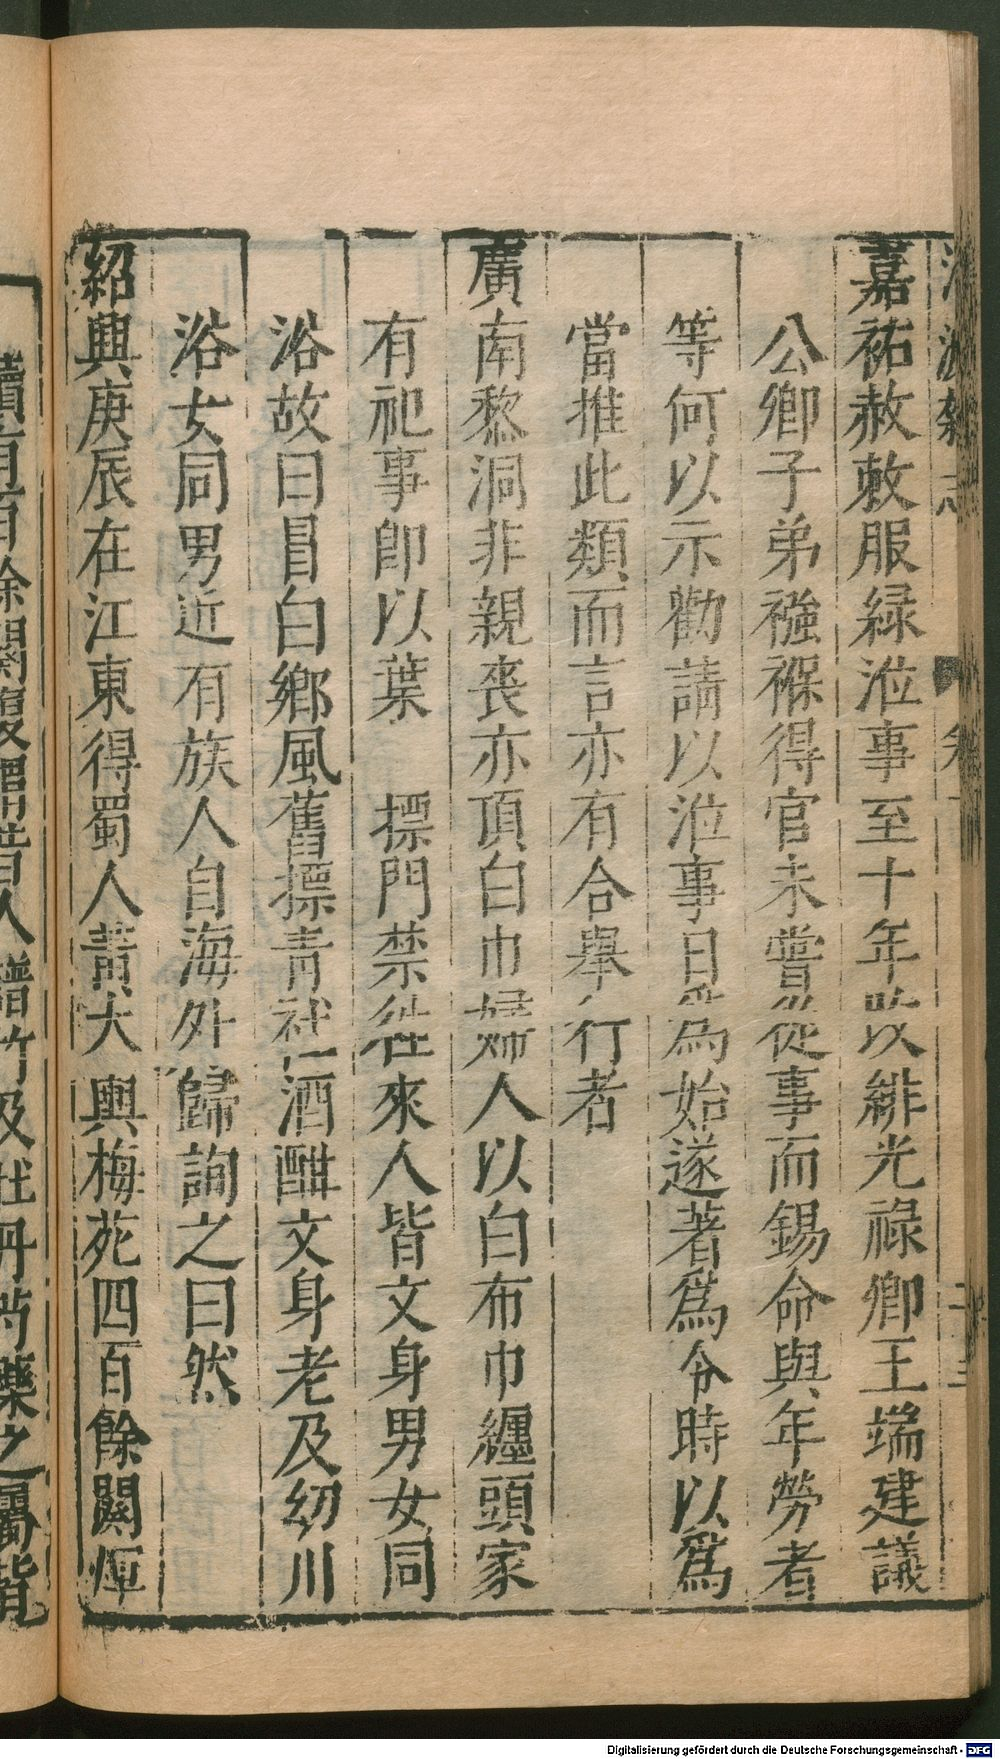 清波雜志
嘉祐赦敕服緑涖事至十年改以緋光祿卿王端建議
公卿子弟襁褓得官未嘗從事而錫命與年勞者
等何以示勸請以涖事日爲始遂著爲令時以爲
當推此類而言亦有合舉行者
廣南黎洞非親喪亦頂白巾婦人以白布巾纏頭家
有祀事即以葉 摽門禁徃來人皆文身男女同
浴故曰昌白鄉風舊摽青社酒酣文身老及幼川
浴女同男近有族人自海外歸詢之曰然
紹興庚辰在江東得蜀人黃大輿梅苑四百餘闋煇
續有百餘闋復
人譜竹及牡丹芍藥之屬皆
Digitalisierung gefördert durch die Deutsche Forschungsgemeinschaft - DFG